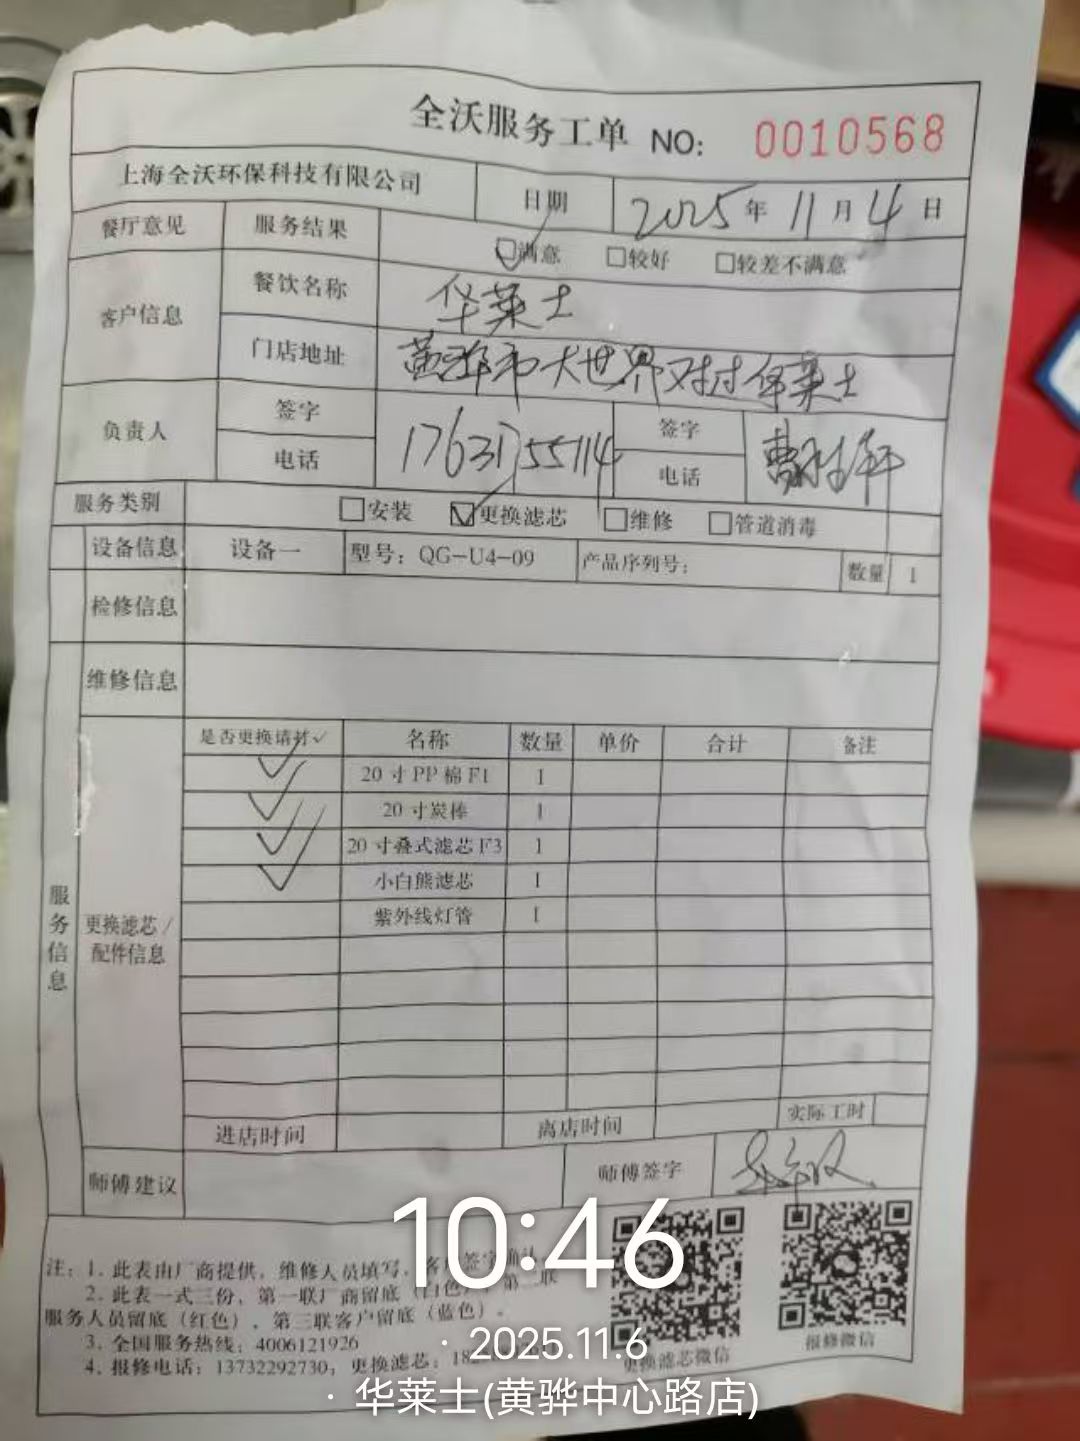 全沃服务工单 NO: 0010568
上海全沃环保科技有限公司 日期 2025年11月4日
餐厅意见 服务结果 ☑满意 □较好 □较差不满意
客户信息 餐饮名称 华莱士
门店地址 黄骅市大世界对过华莱士
负责人 签字 电话 17631755114 签字 电话 曹
服务类别 □安装 ☑更换滤芯 □维修 □管道消毒
设备信息 设备一 型号：QG-U4-09 产品序列号： 数量 1
检修信息
维修信息
服务信息
更换滤芯/配件信息
是否更换请打✓ 名称 数量 单价 合计 备注
✓ 20寸PP棉F1 1
✓ 20寸炭棒 1
✓ 20寸叠式滤芯F3 1
✓ 小白熊滤芯 1
紫外线灯管 1
进店时间 离店时间 实际工时
师傅建议 师傅签字
10:46
注：1. 此表由厂商提供，维修人员填写，客户签字确认
2. 此表一式三份，第一联厂商留底（白色），第二联
服务人员留底（红色），第三联客户留底（蓝色）。
3. 全国服务热线：4006121926
4. 报修电话：13732292730，更换滤芯：
更换滤芯微信 报修微信
· 2025.11.6
· 华莱士(黄骅中心路店)